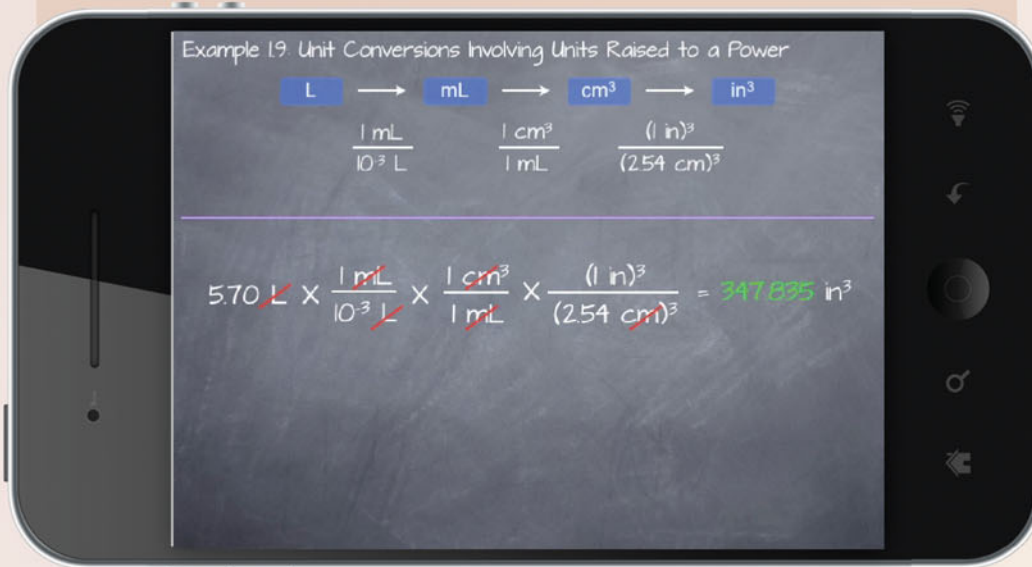 Example 1.9. Unit Conversions Involving Units Raised to a Power
L → mL → cm³ → in³
1 mL / 10⁻³ L   1 cm³ / 1 mL   (1 in)³ / (2.54 cm)³
5.70 L X 1 mL / 10⁻³ L X 1 cm³ / 1 mL X (1 in)³ / (2.54 cm)³ = 347.835 in³